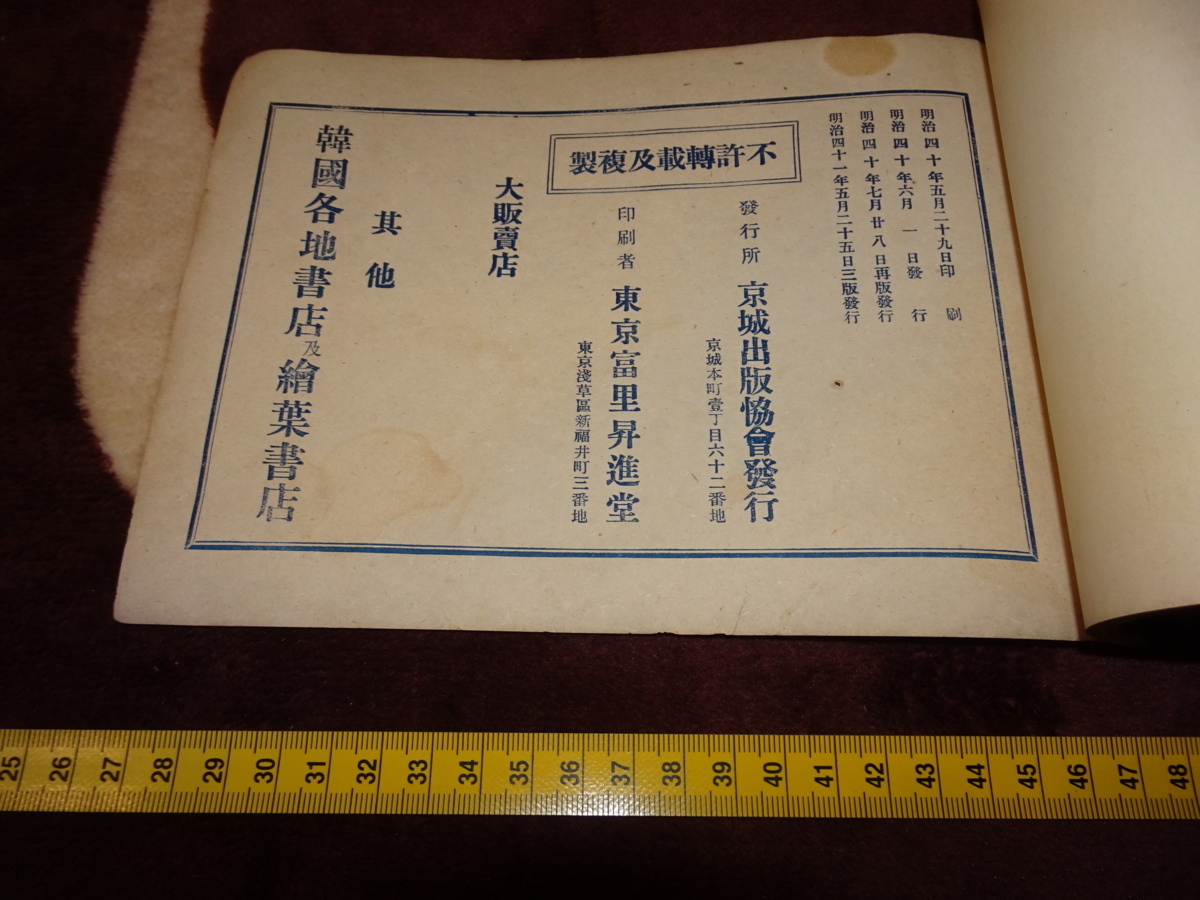 明治四十年五月二十九日印刷
明治四十年六月一日發行
明治四十年七月廿八日再版發行
明治四十一年五月二十五日三版發行
不許轉載及複製
發行所 京城出版協會發行
京城本町壹丁目六十二番地
印刷者 東京富里昇進堂
東京淺草區新福井町三番地
大販賣店
其他
韓國各地書店及繪葉書店
25 26 27 28 29 30 31 32 33 34 35 36 37 38 39 40 41 42 43 44 45 46 47 48